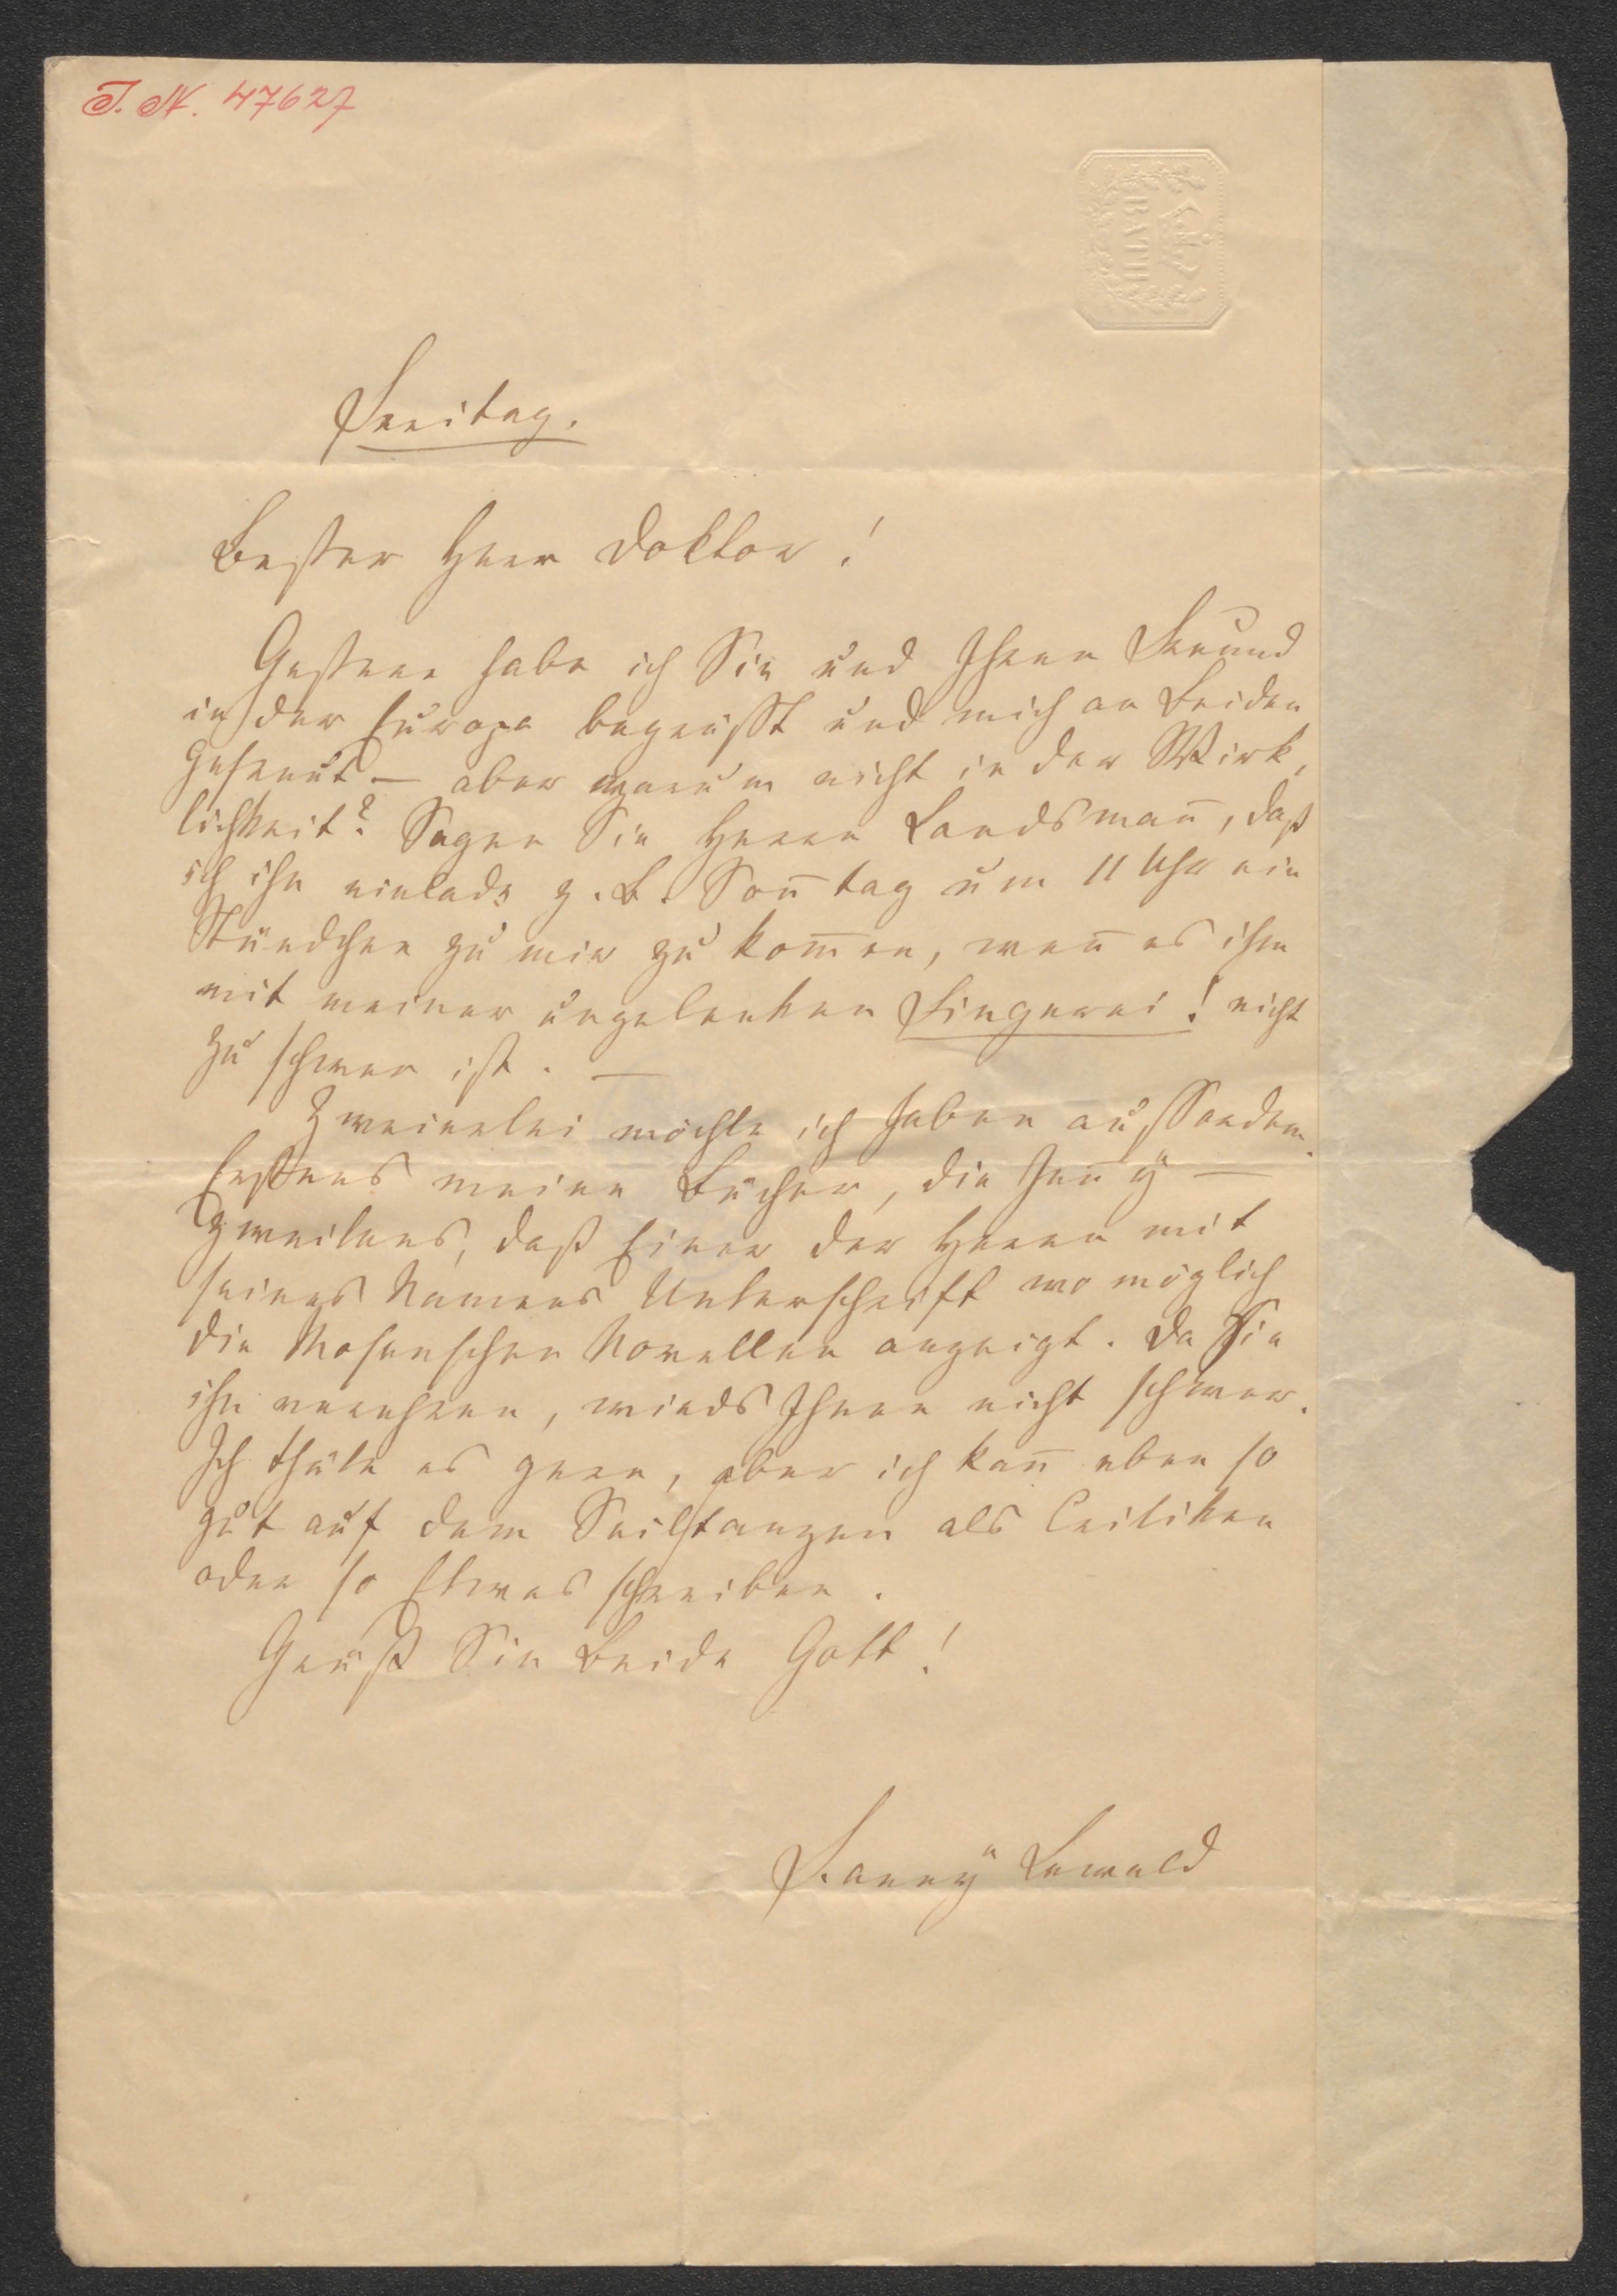 I. N. 47627
BATH
Freitag.
Bester Herr Doktor!
Gestern habe ich Sie und Ihren Freund
in der Europa begrüßt und mich an Beiden
gefreut — aber warum nicht in der Wirk,
lichkeit? Sagen Sie Herrn Landsmañ, daß
ich ihn einlade z. B. Soñtag um 11 Uhr ein
Stündchen zu mir zu kom̄en, weñ es ihm
mit meiner ungelenken Singerei! nicht
zu schwer ist. —
Zweierlei möchte ich haben außerdem.
Erstens meine Bücher, die Jeñy —
Zweitens, daß Einer der Herren mit
seines Namens Unterschrift wo möglich
die Mosenschen Novellen anzeigt. Da Sie
ihn verehren, wirds Ihnen nicht schwer.
Ich thäte es gern, aber ich kañ eben so
gut auf dem Seil tanzen als Critiken
oder so Etwas schreiben.
Grüß Sie Beide Gott!
Fanny Lewald